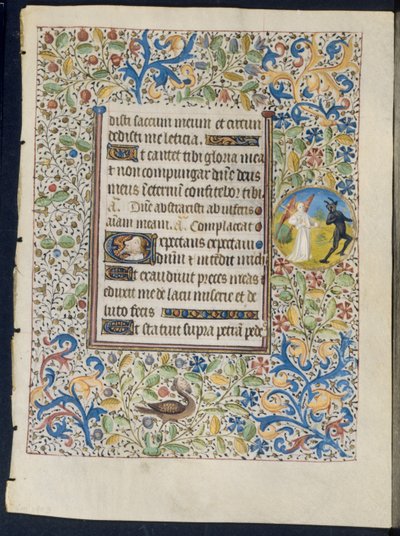 disti saccum meum et circun
dedisti me leticia.
Et cantet tibi gloria mea
et non compungar dñe deus
meus ī eternum confitebor tibi
añ. Dñe abstraxisti ab inferis
aīam meam. añ. Complaceat
Expectans expectaui
dñm et intēdit mich
Et exaudiuit preces meas et
eduxit me de lacu miserie et de
luto fecis
Et statuit supra petrā pede